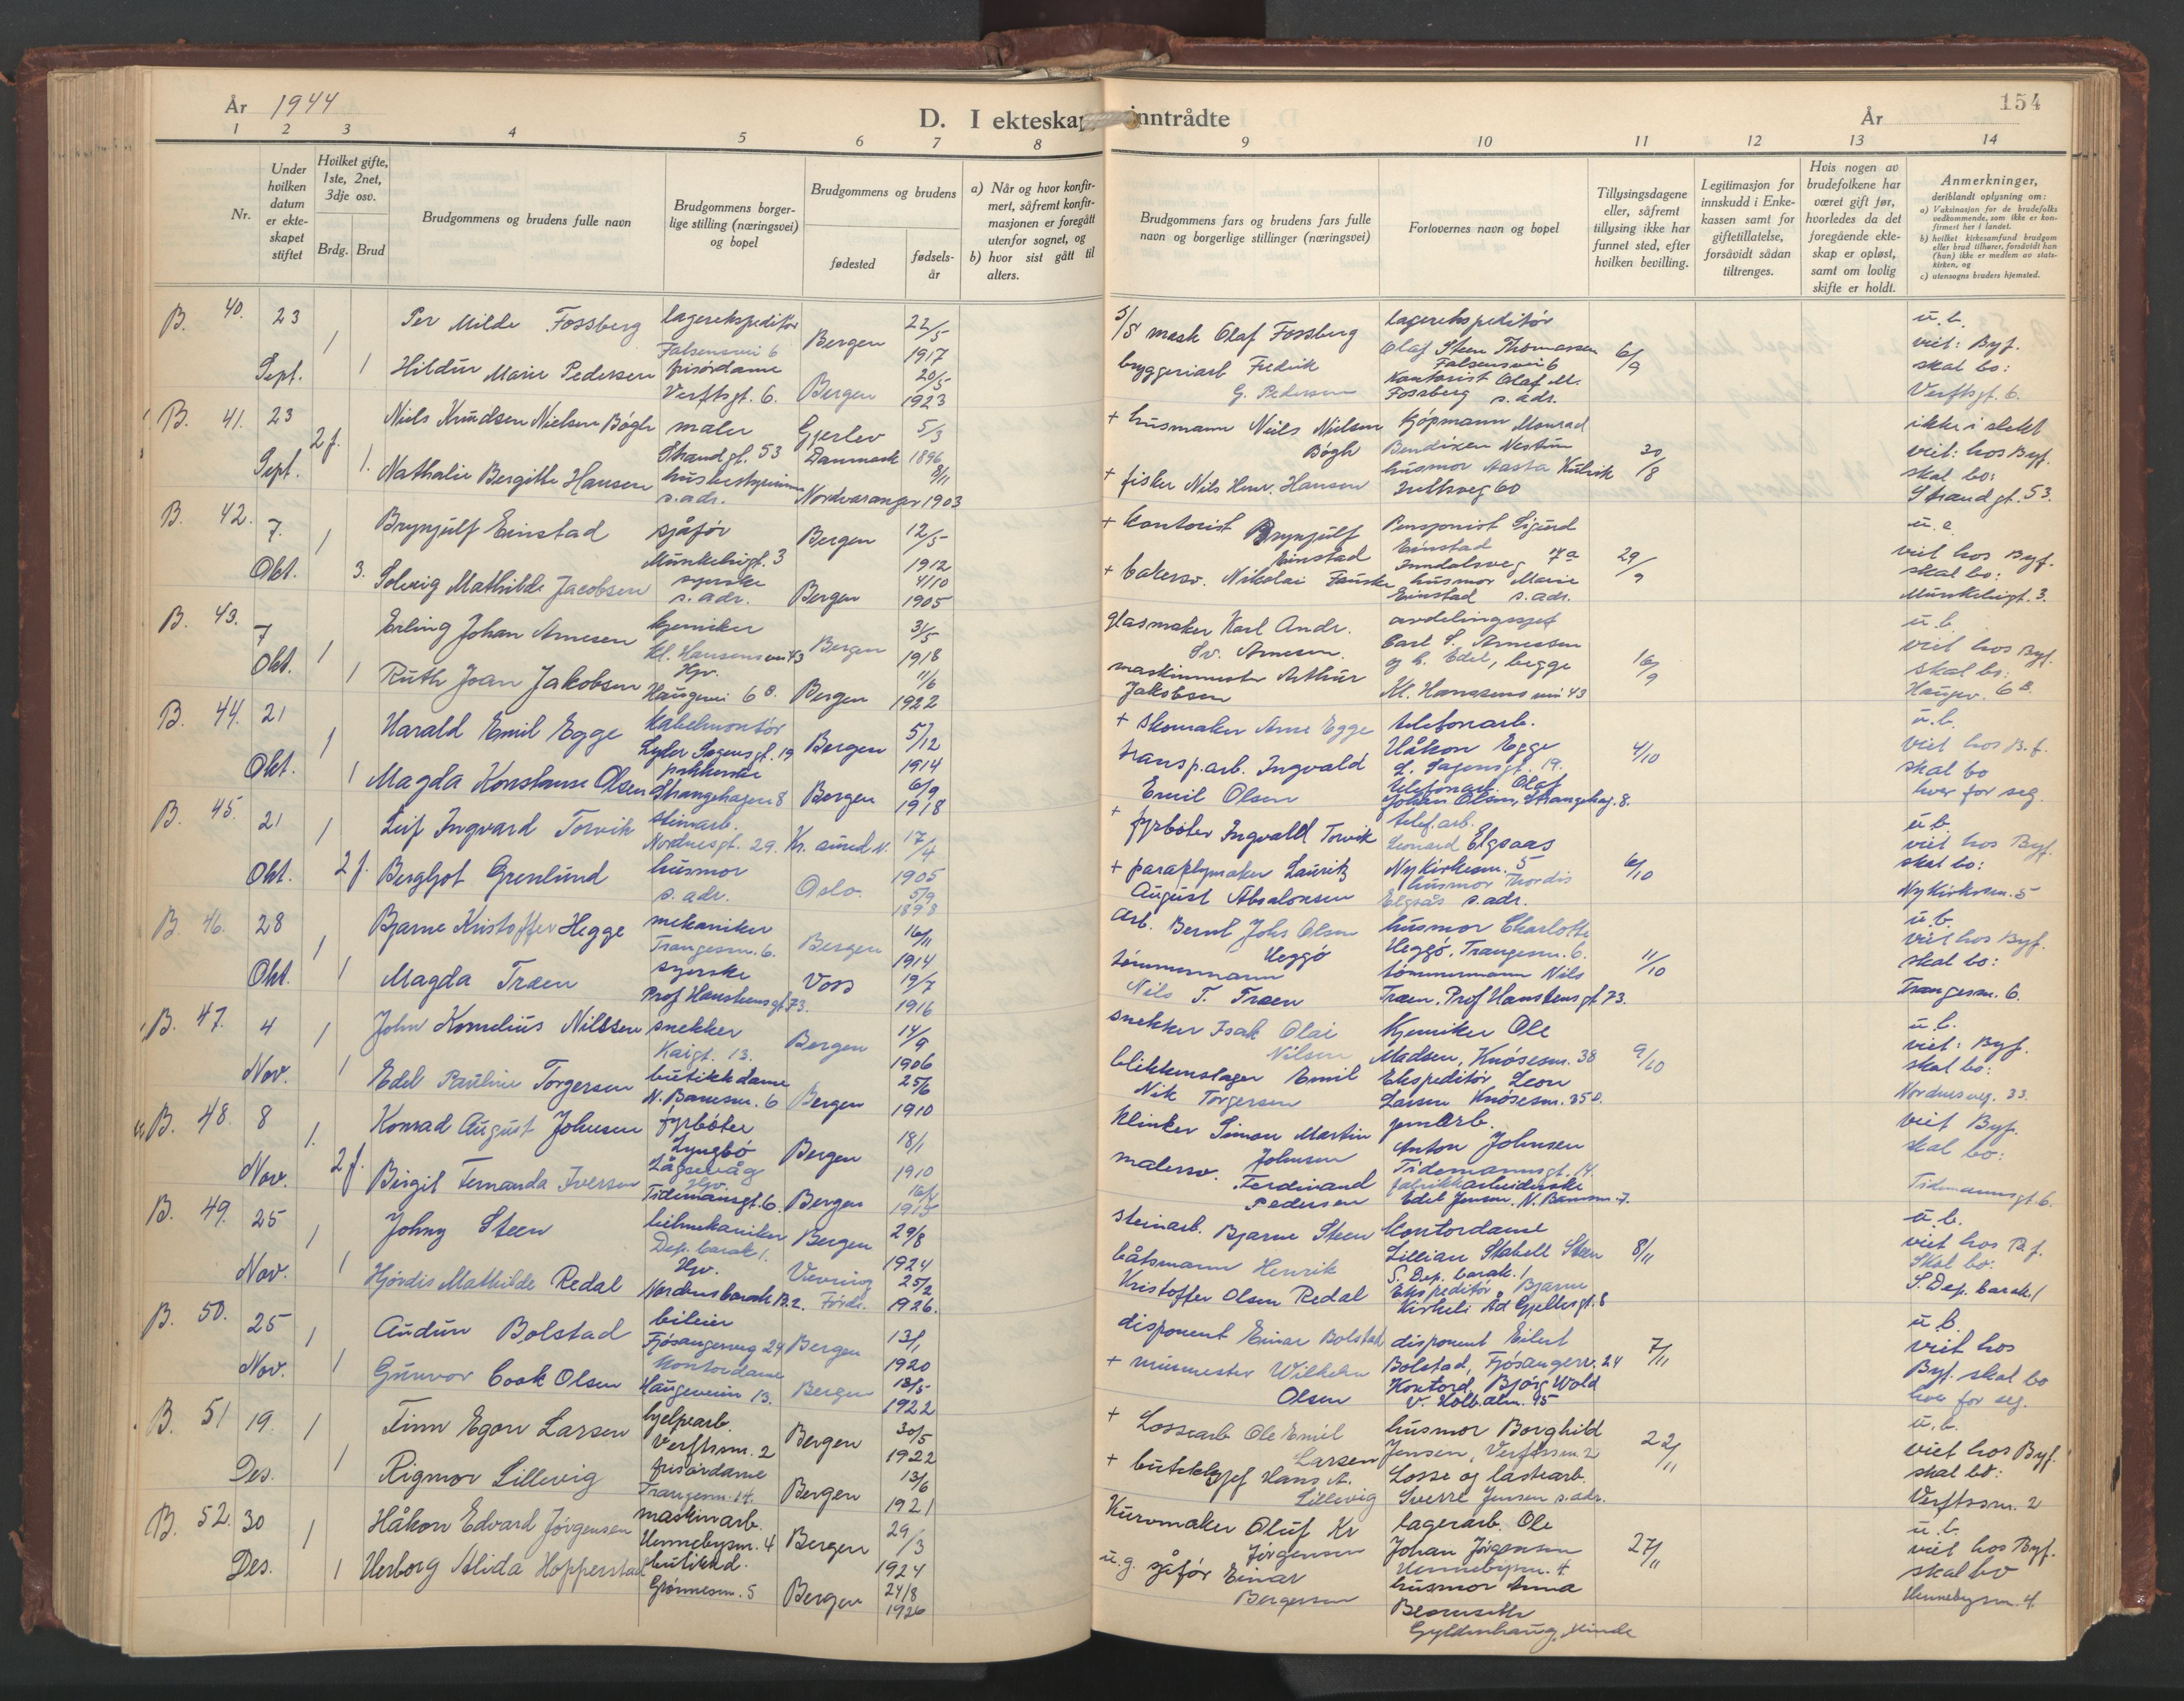 År 1944
D. I ekteskap inntrådte
År
154
1 2 3 4 5 6 7 8 9 10 11 12 13 14
Nr.
Under hvilken datum er ekteskapet stiftet
Hvilket gifte, 1ste, 2net, 3dje osv.
Brdg. Brud
Brudgommens og brudens fulle navn
Brudgommens borgerlige stilling (næringsvei) og bopel
Brudgommens og brudens
fødested
fødselsår
a) Når og hvor konfirmert, såfremt konfirmasjonen er foregått utenfor sognet, og
b) hvor sist gått til alters.
Brudgommens fars og brudens fars fulle navn og borgerlige stillinger (næringsvei)
Forlovernes navn og bopel
Tillysingsdagene eller, såfremt tillysing ikke har funnet sted, efter hvilken bevilling.
Legitimasjon for innskudd i Enkekassen samt for giftetillatelse, forsåvidt sådan tiltrenges.
Hvis nogen av brudefolkene har været gift før, hvorledes da det foregående ekteskap er opløst, samt om lovlig skifte er holdt.
Anmerkninger,
deriblandt oplysning om:
a) Vaksinasjon for de brudefolks vedkommende, som ikke er konfirmert her i landet.
b) hvilket kirkesamfund brudgom eller brud tilhører, forsåvidt han (hun) ikke er medlem av statskirken, og
c) utensogns bruders hjemsted.
B. 40. 23 Sept. 1 1
Per Milde Fossberg lagerekspeditør Falsensvei 6 Bergen 22/5 1917
Hildur Marie Pedersen frisørdame Verftsgt. 6. Bergen 20/5 1923
5/5 mask Olaf Fossberg
bryggeriarb Fredrik G. Pedersen
lagerekspeditör Olaf Steen Thomassen Falsensvei 6
Kontorist Olaf M. Fossberg s. adr.
6/9
u.b. viet: Byf. skal bo: Verftsgt. 6.
B. 41. 23 Sept. 2 f. 1.
Niels Knudsen Nielsen Bögh maler Strandgt. 53 Gjerlev Danmark 5/3 1896
Nathalie Bergitte Hansen husbestyrerinne s. adr. Nordvaranger 8/11 1903
+ husmann Niels Nielsen Bögh
+ fisker Nils Henr. Hansen
kjøpmann Monrad Bendixen Nestun
husmor Aasta
30/8
ikke i slekt viet: hos Byf. skal bo: Strandgt. 53.
B. 42. 7. Okt. 1 3.
Brynjulf Einstad sjåfør Munkebrigt. 3 Bergen 12/5 1912
Solveig Mathilde Jacobsen syerske s. adr. Bergen 4/10 1905
+ Kontorist Brynjulf Einstad
+ bakersv. Nikolai Fauske
Pensjonist Sigurd Einstad Inndalsveg 17a
husmor Marie Einstad s. adr.
29/9
viet hos Byf. skal bo: Munkebrigt. 3.
B. 43. 7 Okt. 1 1
Erling Johan Arnesen kjemiker Kl. Hansensvei 43 Bergen 31/5 1918
Ruth Joan Jakobsen Hjv. Haugevei 6 B. Bergen 11/6 1922
glasmaker Karl Andr. Sv. Arnesen.
maskinmester Arthur Jakobsen
avdelingssjef Carl S. Arnessen og h. Edel, begge Kl. Hanssens vei 43
16/9
u.b. viet hos Byf. skal bo: Haugev. 6 B.
B. 44. 21 Okt. 1 1
Harald Emil Egge kabelmontør Lyder Sagensgt. 19 Bergen 5/12 1914
Magda Konstanse Olsen pakkerske Strangehagen 8 Bergen 6/9 1918
+ skomaker Arne Egge
transp.arb. Ingvald Emil Olsen
telefonarb. Håkon Egge L. Sagensgt. 19.
telefonarb. Olaf Johan Olsen, Strangehag. 8.
4/10
u.b. viet hos B.f. skal bo hver for seg.
B. 45. 21 Okt. 1 2 f.
Leif Ingvard Torvik steinarb. Nordnesgt. 29. Kr. sund N. 17/4 1905
Bergljot Grenlund husmor s. adr. Oslo. 5/9 1898
+ fyrbøter Ingvald Torvik
+ paraplymaker Lauritz August Absalonsen
telef. arb. Leonard Elgsaas Nykirkesm. 5
husmor Thordis Elgsås s. adr.
6/10
u.b. viet hos Byf. skal bo: Nykirkesm. 5
B. 46. 28 Okt. 1 1
Bjarne Kristoffer Hegge mekaniker Trangesm. 6. Bergen 16/11 1914
Magda Træen syerske Prof Hansteensgt. 73. Voss 19/7 1916
Arb. Bernt Johs Olsen Heggö
tømmermann Nils T. Træen
husmor Charlotte Heggö, Trangesm. 6.
tömmermann Nils Træen, Prof Hanstensgt. 73.
11/10
u.b. viet hos Byf. skal bo: Trangesm. 6.
B. 47. 4 Nov. 1 1
John Kornelius Nilssen snekker Kaigt. 13. Bergen 14/9 1906
Edel Pauline Torgersen butikkdame N. Banesm. 6 Bergen 25/6 1910
snekker Isak Olai Nilsen
blikkenslager Emil Nik Torgersen
Kjemiker Ole Madsen, Knösesm. 38
Ekspeditör Leon Larsen Knösesm. 35 B.
9/10
u.b. viet: Byf. skal bo: Nordnesveg. 33.
B. 48. 8 Nov. 1. 2 f.
Konrad August Johnsen fyrböter Lyngbö Laksevåg Bergen 18/1 1910
Birgit Fernanda Iversen Hjv. Tidemansgt. 6. Bergen 1915
Klinker Simon Martin Johnsen
malersv. Ferdinand Pedersen
jernarb. Anton Johnsen Tidemannsgt. 14.
fabrikkarbeiderske Edel Jensen, N. Banesm. 7.
viet Byf. skal bo: Tidemannsgt 6.
B. 49. 25 Nov. 1 1
Johny Steen bilmekaniker Dep. barak 1. Bergen 29/8 1924
Hjördis Mathilde Redal Hjv. Nordnesbarak B. 2. Vevring Förde. 25/2 1926.
steinarb. Bjarne Steen
båtsmann Henrik Kristoffer Olsen Redal
kontordame Lillian Stabell Steen S. Dep. barak. 1
Ekspeditør Bjarne Kirkeli Ad Gjellesgt. 8
8/11
u.b. viet hos B.f. Skal bo: S. Dep. barak 1
B. 50. 25 Nov. 1 1
Audun Bolstad bileier Fjösangerveg 24 Bergen 13/1 1920
Gunvor Cook Olsen kontordame Haugeveien 13. Bergen 18/5 1922
disponent Einar Bolstad
+ murmester Wilhelm Olsen
disponent Eilert Bolstad, Fjösangerv. 24
Kontord. Bjørg Wold V. Holb. alm. 95
7/11
u.b. viet hos Byf. skal bo hver for seg.
B. 51 19. Des. 1 1
Finn Egon Larsen hjelpearb. Verftssm. 2 Bergen 30/5 1922
Rigmor Lillevig frisördame Trangesm. 14. Bergen 13/6 1921
+ Lossearb Ole Emil Larsen
+ butikksjef Hans A. Lillevig
husmor Borghild Jensen, Verftssm. 2
Losse og lastearb. Sverre Jensen s. adr.
22/11
u.b. viet hos Byf. skal bo: Verftssm. 2
B. 52. 30 Des. 1 1
Håkon Edvard Jörgensen maskinarb. Hennebysm. 4 Bergen 29/3 1924
Herborg Alida Hopperstad butikkd. Grønnesm. 5 Bergen 24/8 1926
Kurvmaker Oluf Kr Jörgensen
u.g. sjåfør Einar Bergersen
lagerarb. Ole Johan Jörgensen Hennebysm. 4.
husmor Anna Gyldenhaug, Minde
27/11
u.b. viet hos Byf. skal bo Hennebysm. 4.